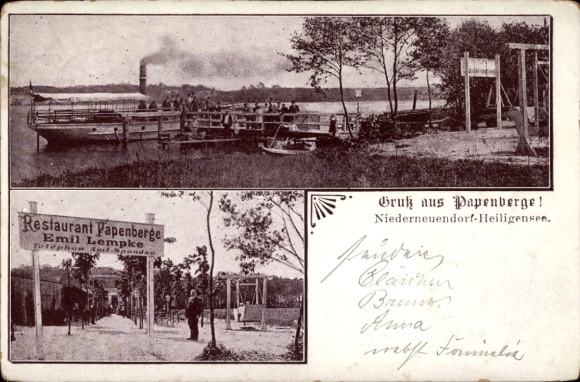 Gruß aus Papenberge!
Niederneuendorf-Heiligensee.
Restaurant Papenberge
Emil Lempke
Telephon Amt Spandau
Clärchen
Bruno
Anna
nebst Familie